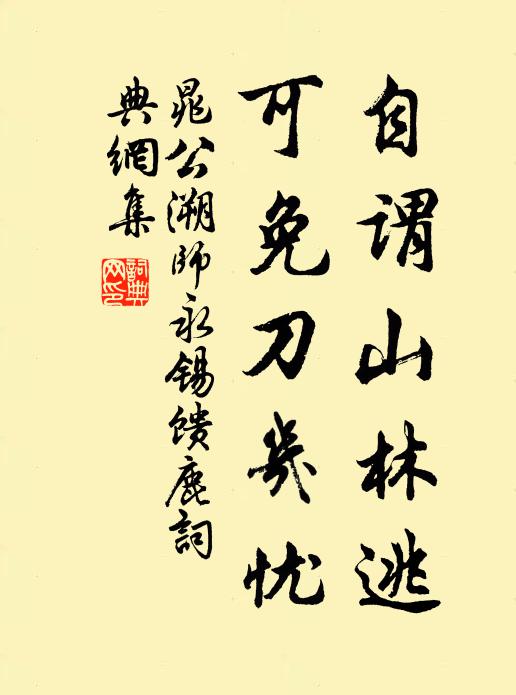 自谓山林逃
可免刀幾忧
晁公溯师永锡馈鹿詞
典網集
詞典
网印